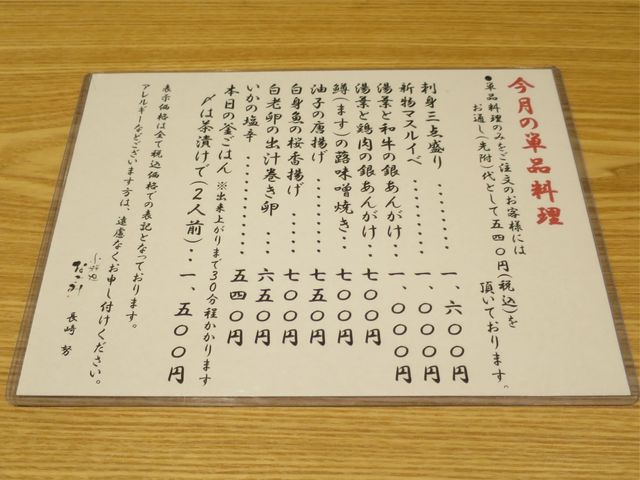 今月の単品料理
●単品料理のみをご注文のお客様には
お通し(先附)代として五四〇円(税込)を
頂いております。
刺身三点盛り・・・・・・・・一、六〇〇円
新物マスルイベ・・・・・・・一、〇〇〇円
湯葉と和牛の銀あんかけ・・一、〇〇〇円
湯葉と鶏肉の銀あんかけ・・七〇〇円
鱒(ます)の蕗味噌焼き・・七〇〇円
油子の唐揚げ・・・・・・・・七五〇円
白身魚の桜香揚げ・・・・・七〇〇円
白老卵の出汁巻き卵・・・・六五〇円
いかの塩辛・・・・・・・・・五四〇円
本日の釜ごはん ※出来上がりまで30分程かかります
〆は茶漬けで(2人前)・・一、五〇〇円
表示価格は全て税込価格での表記となっております。
アレルギーなどございます方は、遠慮なくお申し付けください。
長崎 努